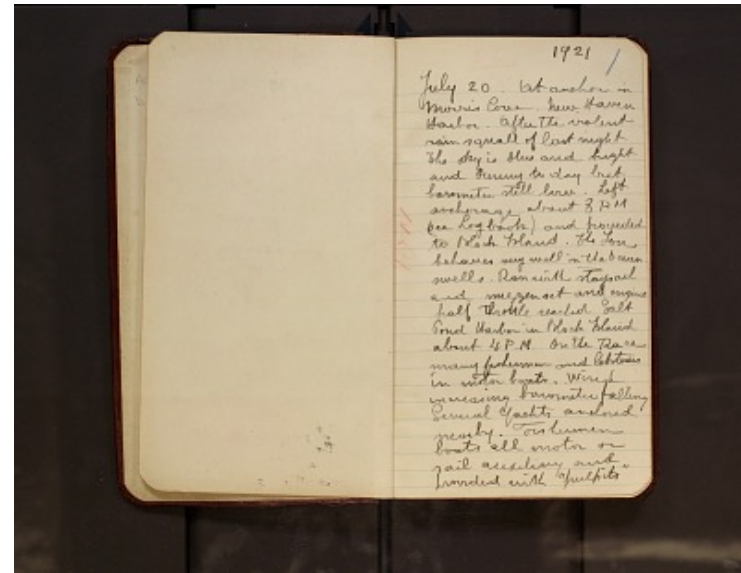 1921
July 20. At anchor in
Morris Cove. New Haven
Harbor. After the violent
rain squall of last night
The sky is blue and bright
and sunny to day but
barometer still low. Left
anchorage about 8 AM
(see Logbook) and proceeded
to Block Island. The
behaves very well in the ocean
swells. Ran with staysail
and mizzen set and engine
half throttle reached Salt
Pond Harbor in Block Island
about 4 P.M. On the Race
many fishermen and lobsters
in motor boats. Wind
increasing barometer falling
Several Yachts anchored
nearby. Fishermen
boats all motor or
sail auxiliary and
provided with "pulpits"